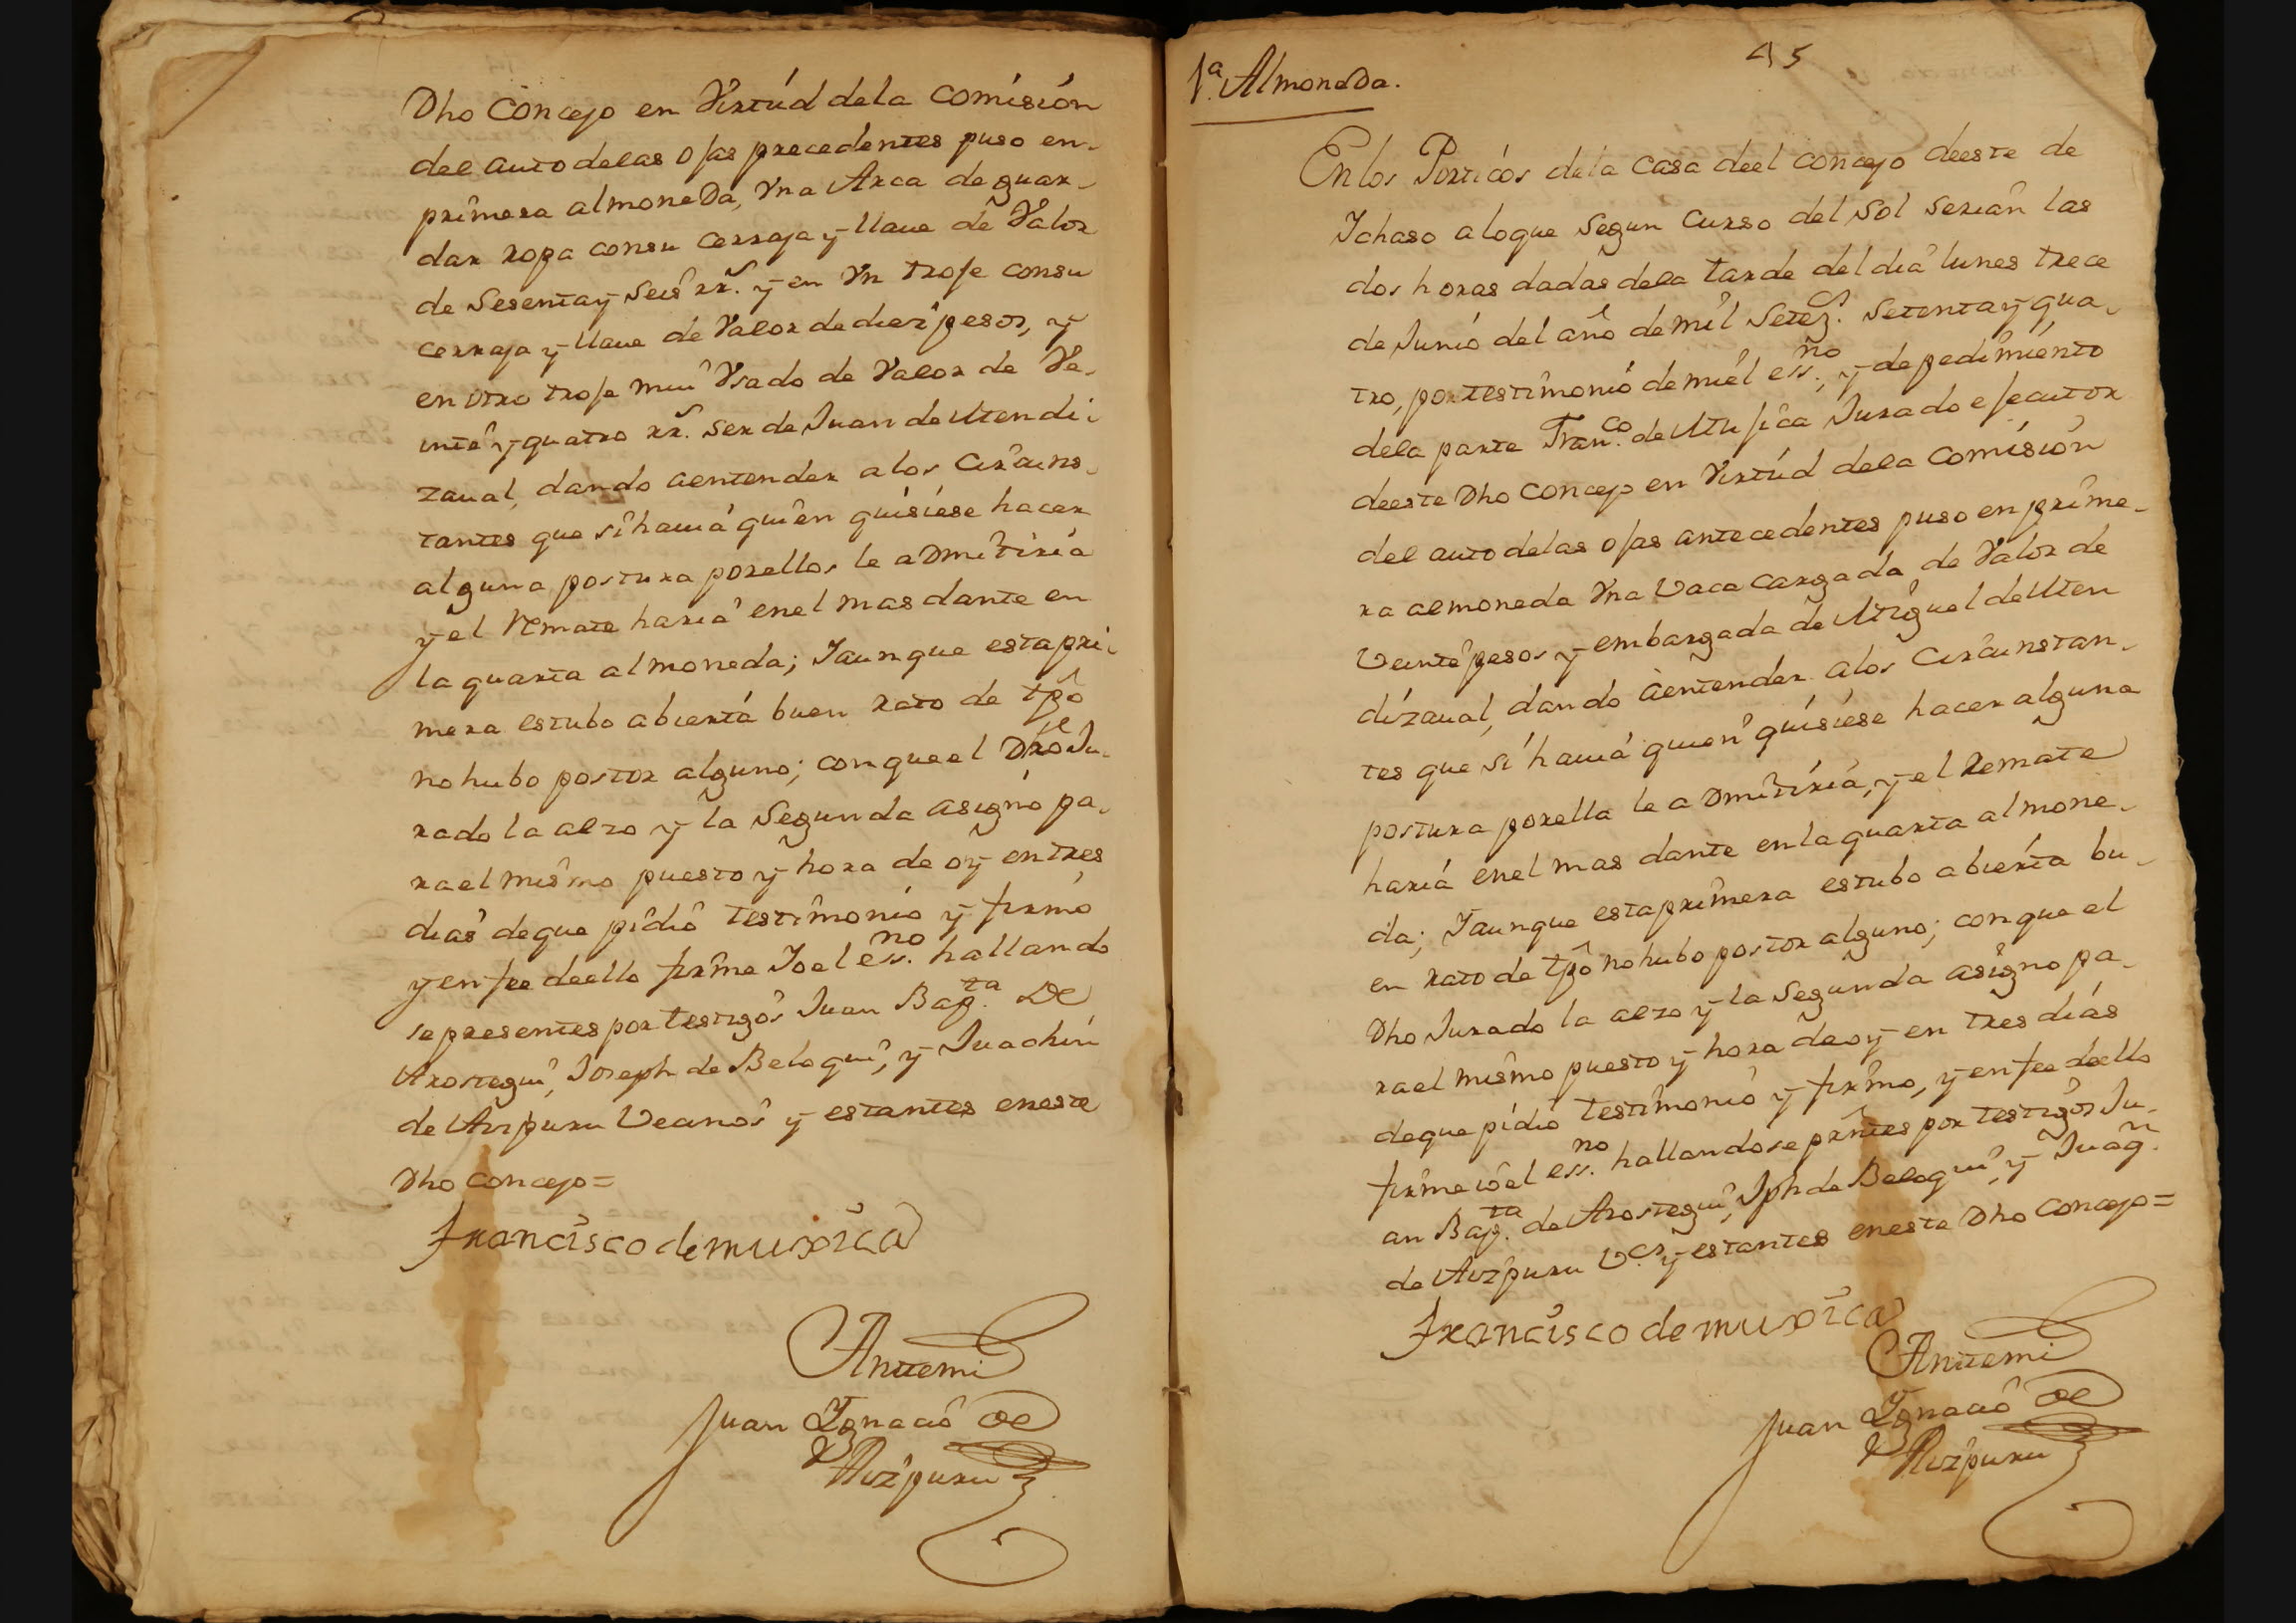 Dho Concejo en Virtúd dela Comisión
del auto delas ojas precedentes puso en
primera almoneda, Vna Arca de guar-
dar ropa consu cerraja y llaue de Valor
de Sesenta y Seis rr.s y en Vn troje consu
cerraja y llaue de Valor de diez pesos, y
en otro troje mui Vsado de Valor de Ve-
inte y quatro rr.s ser de Juan de Mendi-
zaual, dando aentender a los Circuns-
tantes que si hauia quien quisiese hacer
alguna postura porellos le admitiria
y el Remate haria enel mas dante en
la quarta almoneda; Iaunque esta pri-
mera estubo abierta buen rato de tpô
no hubo postor alguno; conque el Dho Ju-
rado la alzo y la Segunda asignó pa-
rael mismo puesto y hora de oy en tres
dias deque pidió testimonio y firmó
y en fee deello firme Io el ess.no hallando
se presentes por testigos Juan Bap.ta De
Arostegui, Joseph de Belogui, y Juachin
de Aizpuru Vecinos y estantes eneste
Dho Concejo =
francisco de muxica
Antemi
Juan Ignacio de
Aizpuru
45
1.a Almoneda.
Enlos Porticos dela casa deel concejo deeste de
Ichaso aloque Segun Curso del Sol serian las
dos horas dadas dela tarde del dia lunes trece
de Junio del año de mil Setez.s Setenta y qua-
tro, por testimonio de mi el ess.no, y de pedimiento
dela parte Fran.co de Mujica Jurado ejecutor
deeste Dho Concejo en Virtúd dela Comisión
del auto delas ojas antecedentes puso en prime-
ra almoneda Vna Vaca cargada de Valor de
Veinte pesos y embargada de Miguel de Men
dizaual, dando aentender alos Circunstan-
tes que si hauia quien quisiese hacer alguna
postura porella le admitiria, y el Remate
haria enel mas dante en la quarta almone-
da; Iaunque esta primera estubo abierta bu-
en rato de tpô no hubo postor alguno; conque el
Dho Jurado la alzo y la Segunda asigno pa-
rael mismo puesto y hora deoy en tres dias
deque pidio testimonio y firmo, y en fee deello
firme io el ess.no hallandose prntes por testigos Ju-
an Bap.ta de Arostegui, Jph de Belogui, y Juaq.n
de Aizpuru V.cs y estantes eneste Dho Concejo =
francisco de muxica
Antemi
Juan Ignacio de
Aizpuru